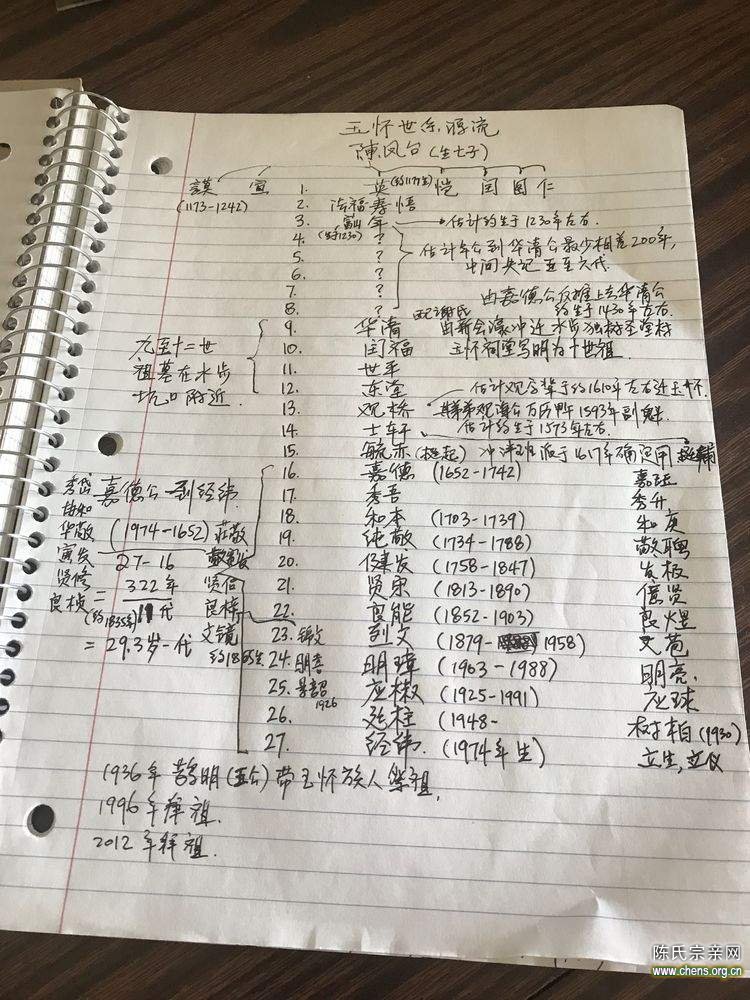 玉怀世系源流
陳凤台(生七子)
謨 宣 英(约1171生) 恺 闰 国 仁
(1173-1242)
1.
2. 法福寿悟
3. 年
(生于1230)
估计约生于1230年左右.
4. ?
5. ?
6. ?
7. ?
8. ?
估计年公到华清公最少相差200年,
中间失记五至六代.
由嘉德公仅推上去华清公
约生于1430年左右.
9. 华清 配谢氏
10. 闰福 玉怀祠堂写明为十世祖.
11. 世平
12. 东堂
九至十二世
祖墓在水步
坑口附近.
估计观合辈于约1610年左右迁玉怀.
13. 观桥 万历 1593年副魁
14. 士轩 估计约生于1573年左右.
15. 毓赤(挺起)
16. 嘉德 (1652-1742) 嘉
17. 秀吾 秀升
18. 和本 (1703-1739) 和庚
19. 纯敬 (1734-1788) 敬聘
20. 健发 (1758-1847) 发极
21. 贤宗 (1813-1890) 信贤
22. 良能 (1852-1903) 良煜
23. 锦文 创文 (1879-1958) 文苞
24. 明喜 明璋 (1903-1988) 明亮
25. 景韶 1926 应椒 (1925-1991) 应球
26. 廷柱 (1948- 树柏(1930)
27. 经纬. (1974年生) 立生,立仪
嘉德公-到经纬
(1974-1652)
27-16
= 322年
11代
= 29.3岁-代
秀岱
协和
华敬
寅发
贤修
良桢
(约1835年)
莊敬
贤信
良梓
文镜
约1885生
1936年 明(五公)带玉怀族人祭祖.
1996年拜祖.
2012年拜祖.
陈氏宗亲网
www.chens.org.cn